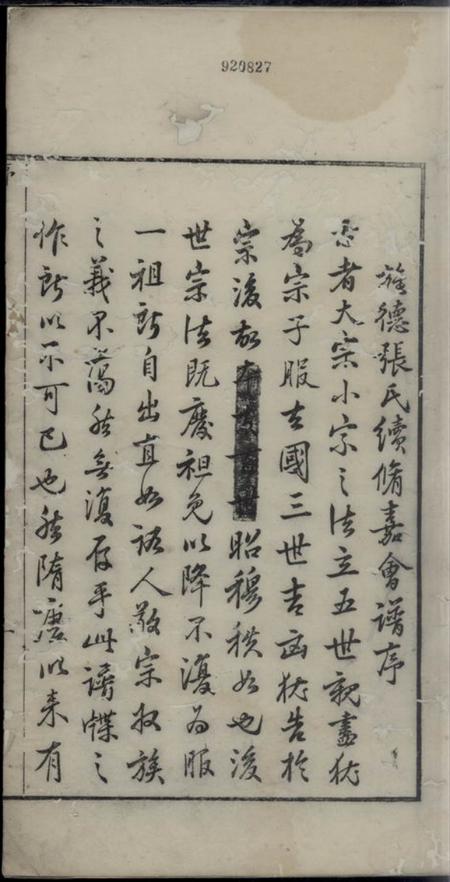 920827
旌德張氏續脩嘉會譜序
古者大宗小宗之法立五世親盡猶
為宗子服去國三世吉凶猶告於
宗後故昭穆秩如也後
世宗法既廢祖免以降不復為服
一祖所自出直如路人敬宗收族
之義不蕩然無復存乎此譜牒之
作所以不可已也然隋唐以來有